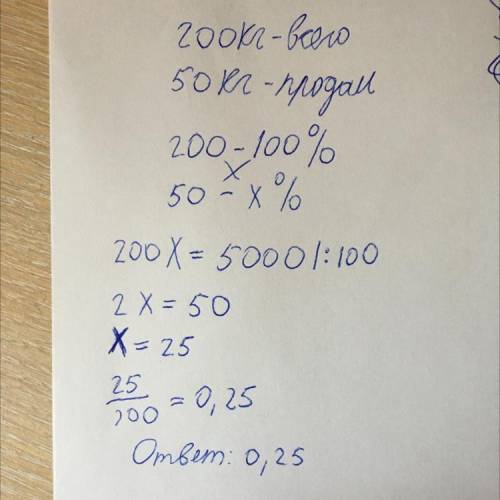 200кг - всего
50кг - продали
200 - 100%
х
50 - х%
200х = 5000 | : 100
2х = 50
х = 25
25/100 = 0,25
Ответ: 0,25